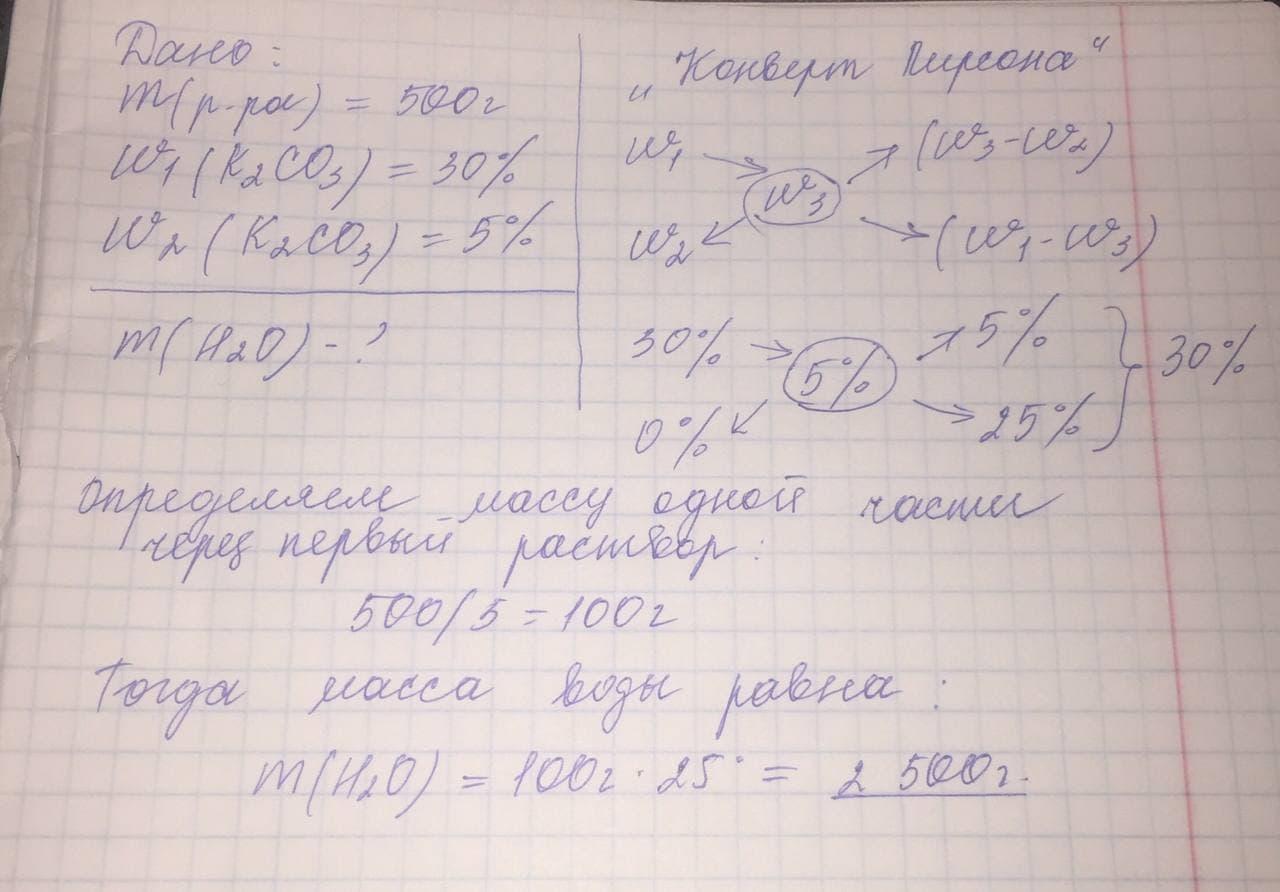 Дано:
m(р-ра) = 500г
W₁(K₂CO₃) = 30%
W₂(K₂CO₃) = 5%
m(H₂O) - ?
„Конверт Пирсона“
W₁ → W₃ ↗ (W₃-W₂)
W₂ ↙ ↘ (W₁-W₃)
30% → 5% ↗ 5% } 30%
0% ↙ ↘ 25%
Определяем массу одной части
через первый раствор:
500/5 = 100г
Тогда масса воды равна:
m(H₂O) = 100г · 25 = 2 500г.